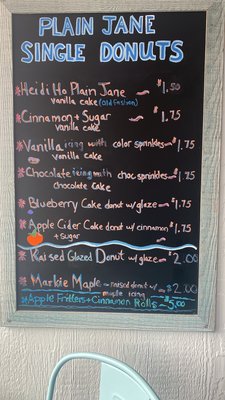 PLAIN JANE
SINGLE DONUTS
Heidi Ho Plain Jane ~ $1.50
vanilla cake (old fastion)
Cinnamon + Sugar ~ $1.75
vanilla cake
Vanilla icing with color sprinkles ~ $1.75
vanilla cake
Chocolate icing with choc sprinkles ~ $1.75
chocolate cake
Blueberry Cake donut w/ glaze ~ $1.75
Apple Cider Cake donut w/ cinnamon $1.75
+ sugar
Raised Glazed Donut w/ glaze ~ $2.00
Markie Maple ~ raised donut w/ ~ $2.00
maple icing
Apple Fritters + Cinnamon Rolls ~ $5.00